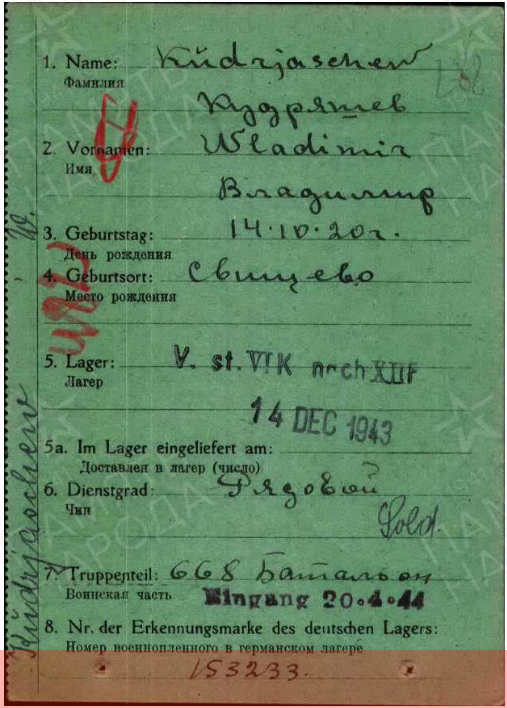 1. Name: Kudrjaschew
Фамилия
Кудряшев
2. Vornamen: Wladimir
Имя
Владимир
3. Geburtstag: 14.10.20г.
День рождения
4. Geburtsort: Свищево
Место рождения
5. Lager: V. st. VI K nach XIII F
Лагер
14 DEC 1943
5a. Im Lager eingeliefert am:
Доставлен в лагер (число)
6. Dienstgrad: Рядовой
Чин
Sold.
7. Truppenteil: 668 Батальон
Воинская часть Eingang 20.4.44
8. Nr. der Erkennungsmarke des deutschen Lagers:
Номер военнопленного в германском лагере
153233.
Kudrjaschew W.
ПАМЯТЬ НАРОДА